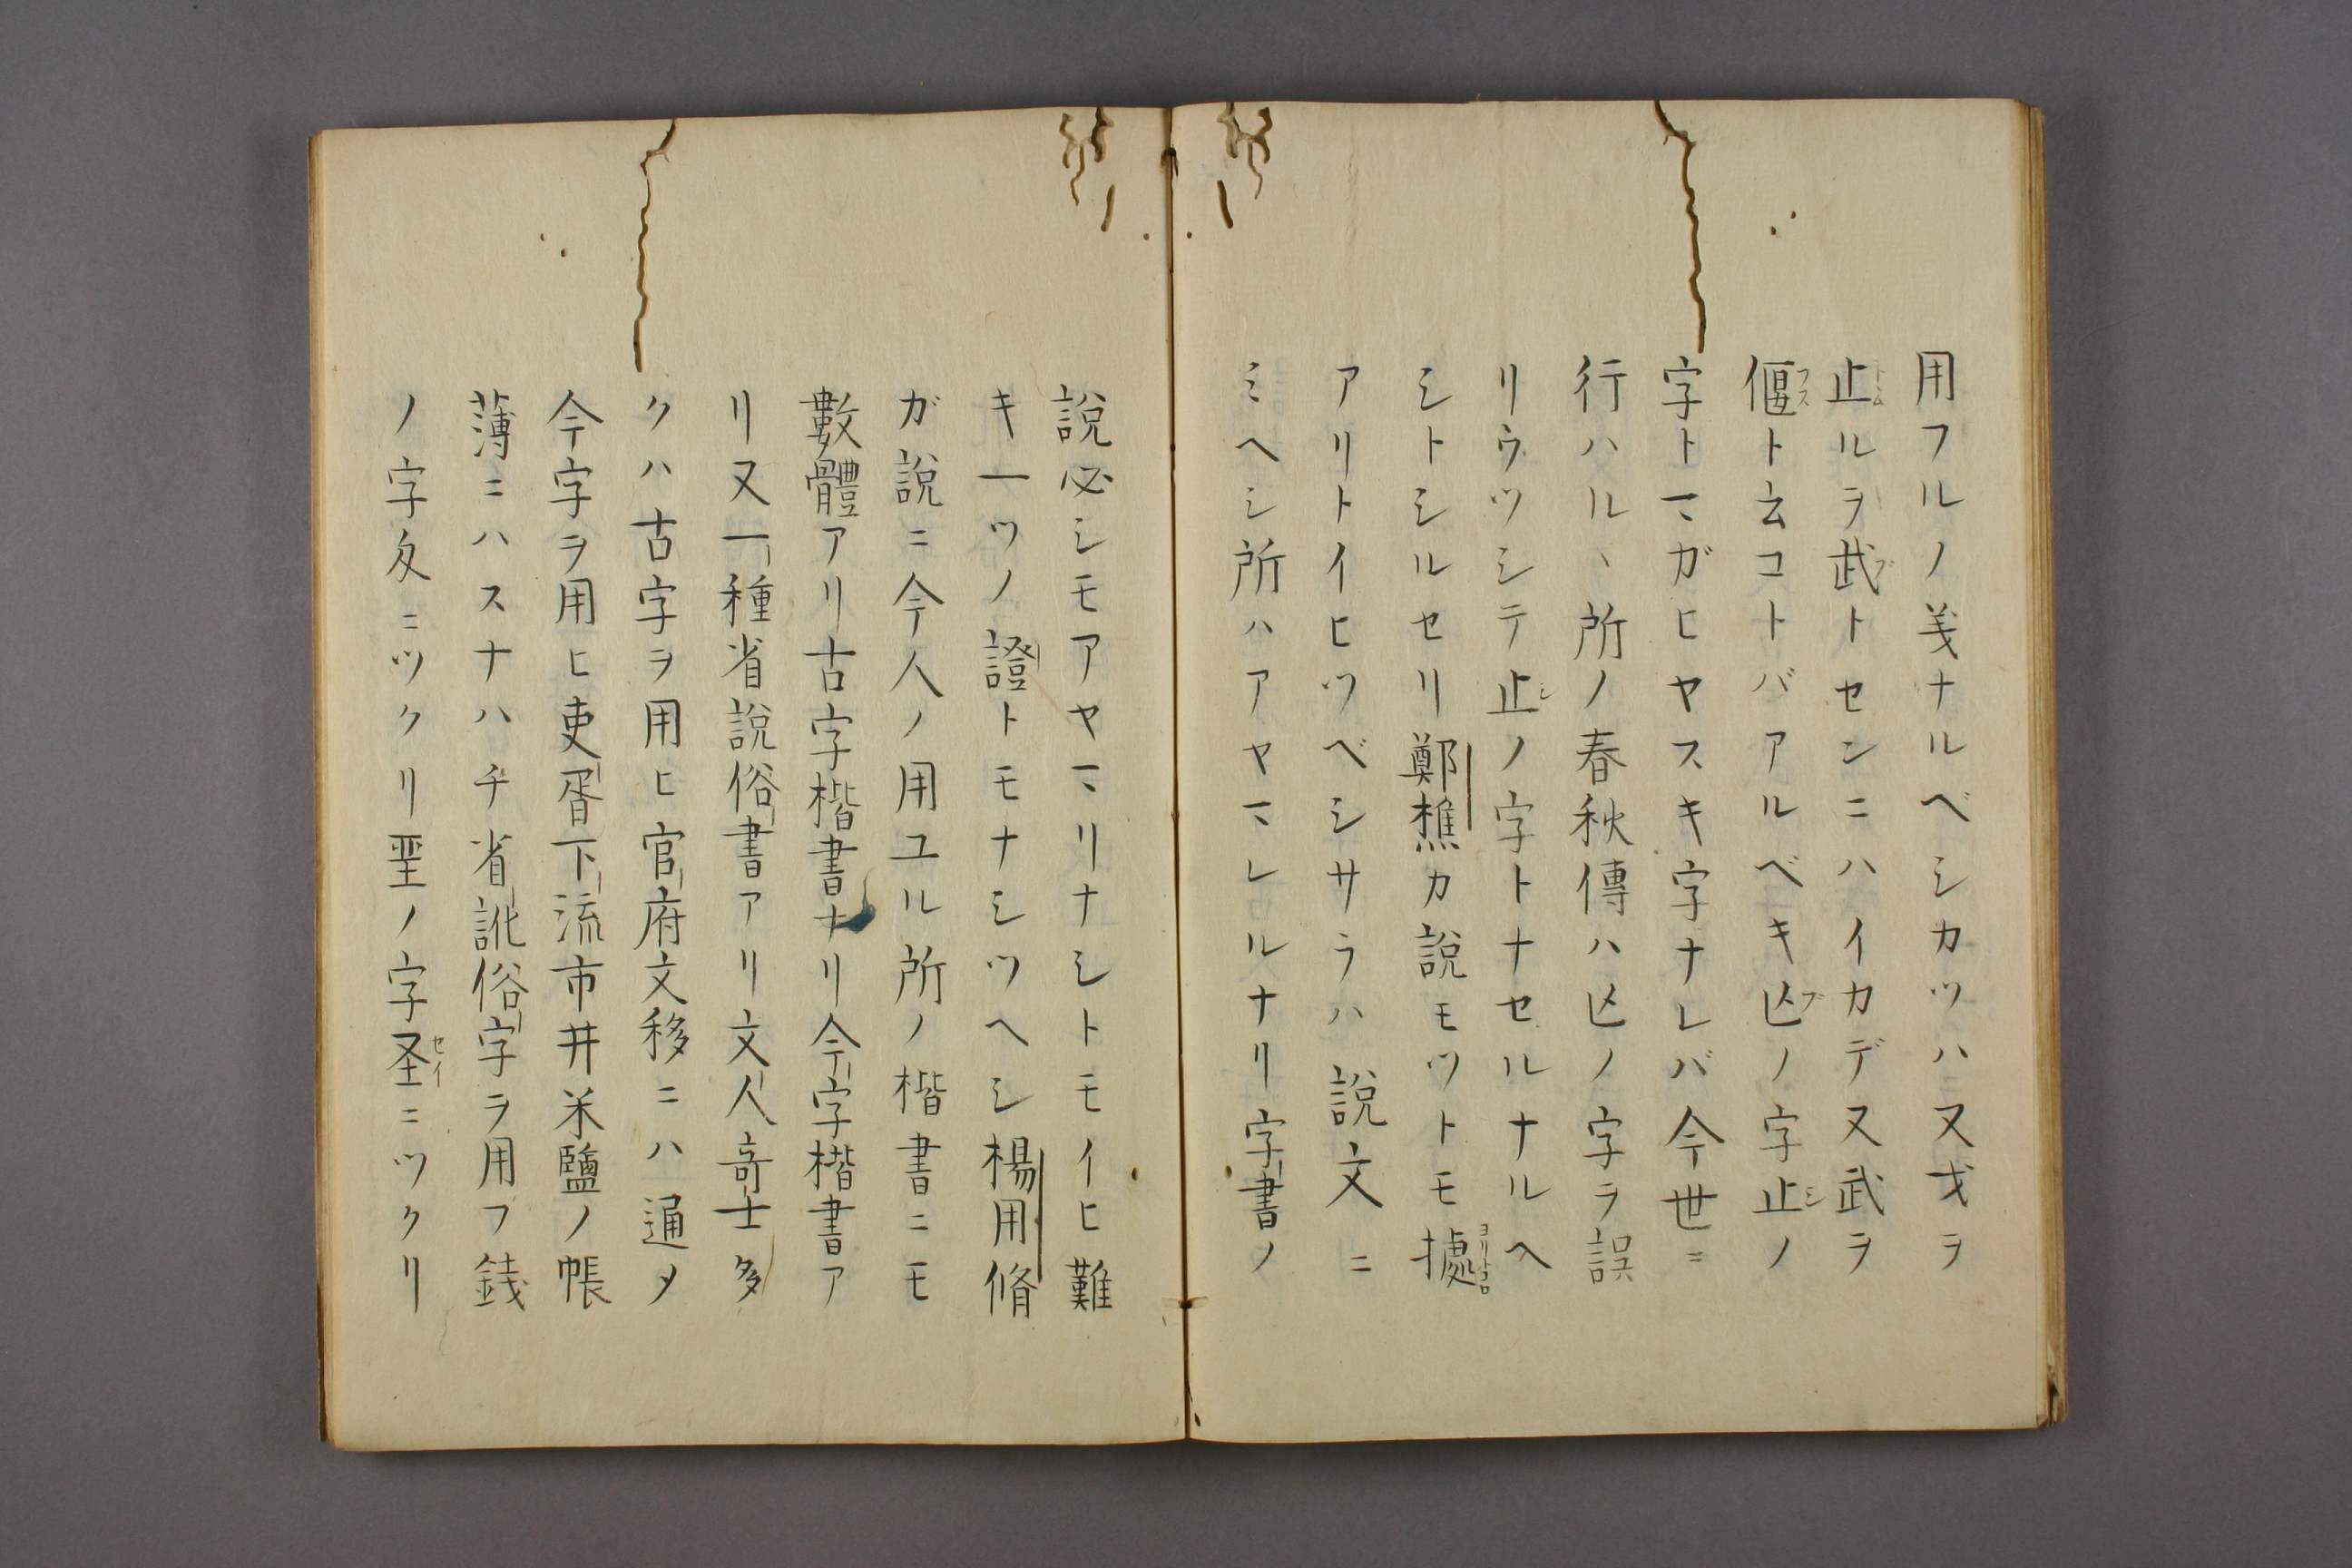 用フルノ義ナルベシカツハ又戈ヲ
止ルヲ武トセンニハイカデ又武ヲ
偃ト云コトバアルベキ亾ノ字止ノ
字トマガヒヤスキ字ナレバ今世ニ
行ハルヽ所ノ春秋傳ハ亾ノ字ヲ誤
リウツシテ止ノ字トナセルナルヘ
シトシルセリ鄭樵カ說モツトモ據
アリトイヒツベシサラハ說文ニ
ミヘシ所ハアヤマレルナリ字書ノ
說必シモアヤマリナシトモイヒ難
キ一ツノ證トモナシツヘシ楊用脩
ガ說ニ今人ノ用ユル所ノ楷書ニモ
數體アリ古字楷書ナリ今字楷書ア
リ又一種省說俗書アリ文人奇士多
クハ古字ヲ用ヒ官府文移ニハ通メ
今字ヲ用ヒ吏胥下流市井米鹽ノ帳
薄ニハスナハチ省訛俗字ヲ用フ銭
ノ字攵ニツクリ聖ノ字圣ニツクリ